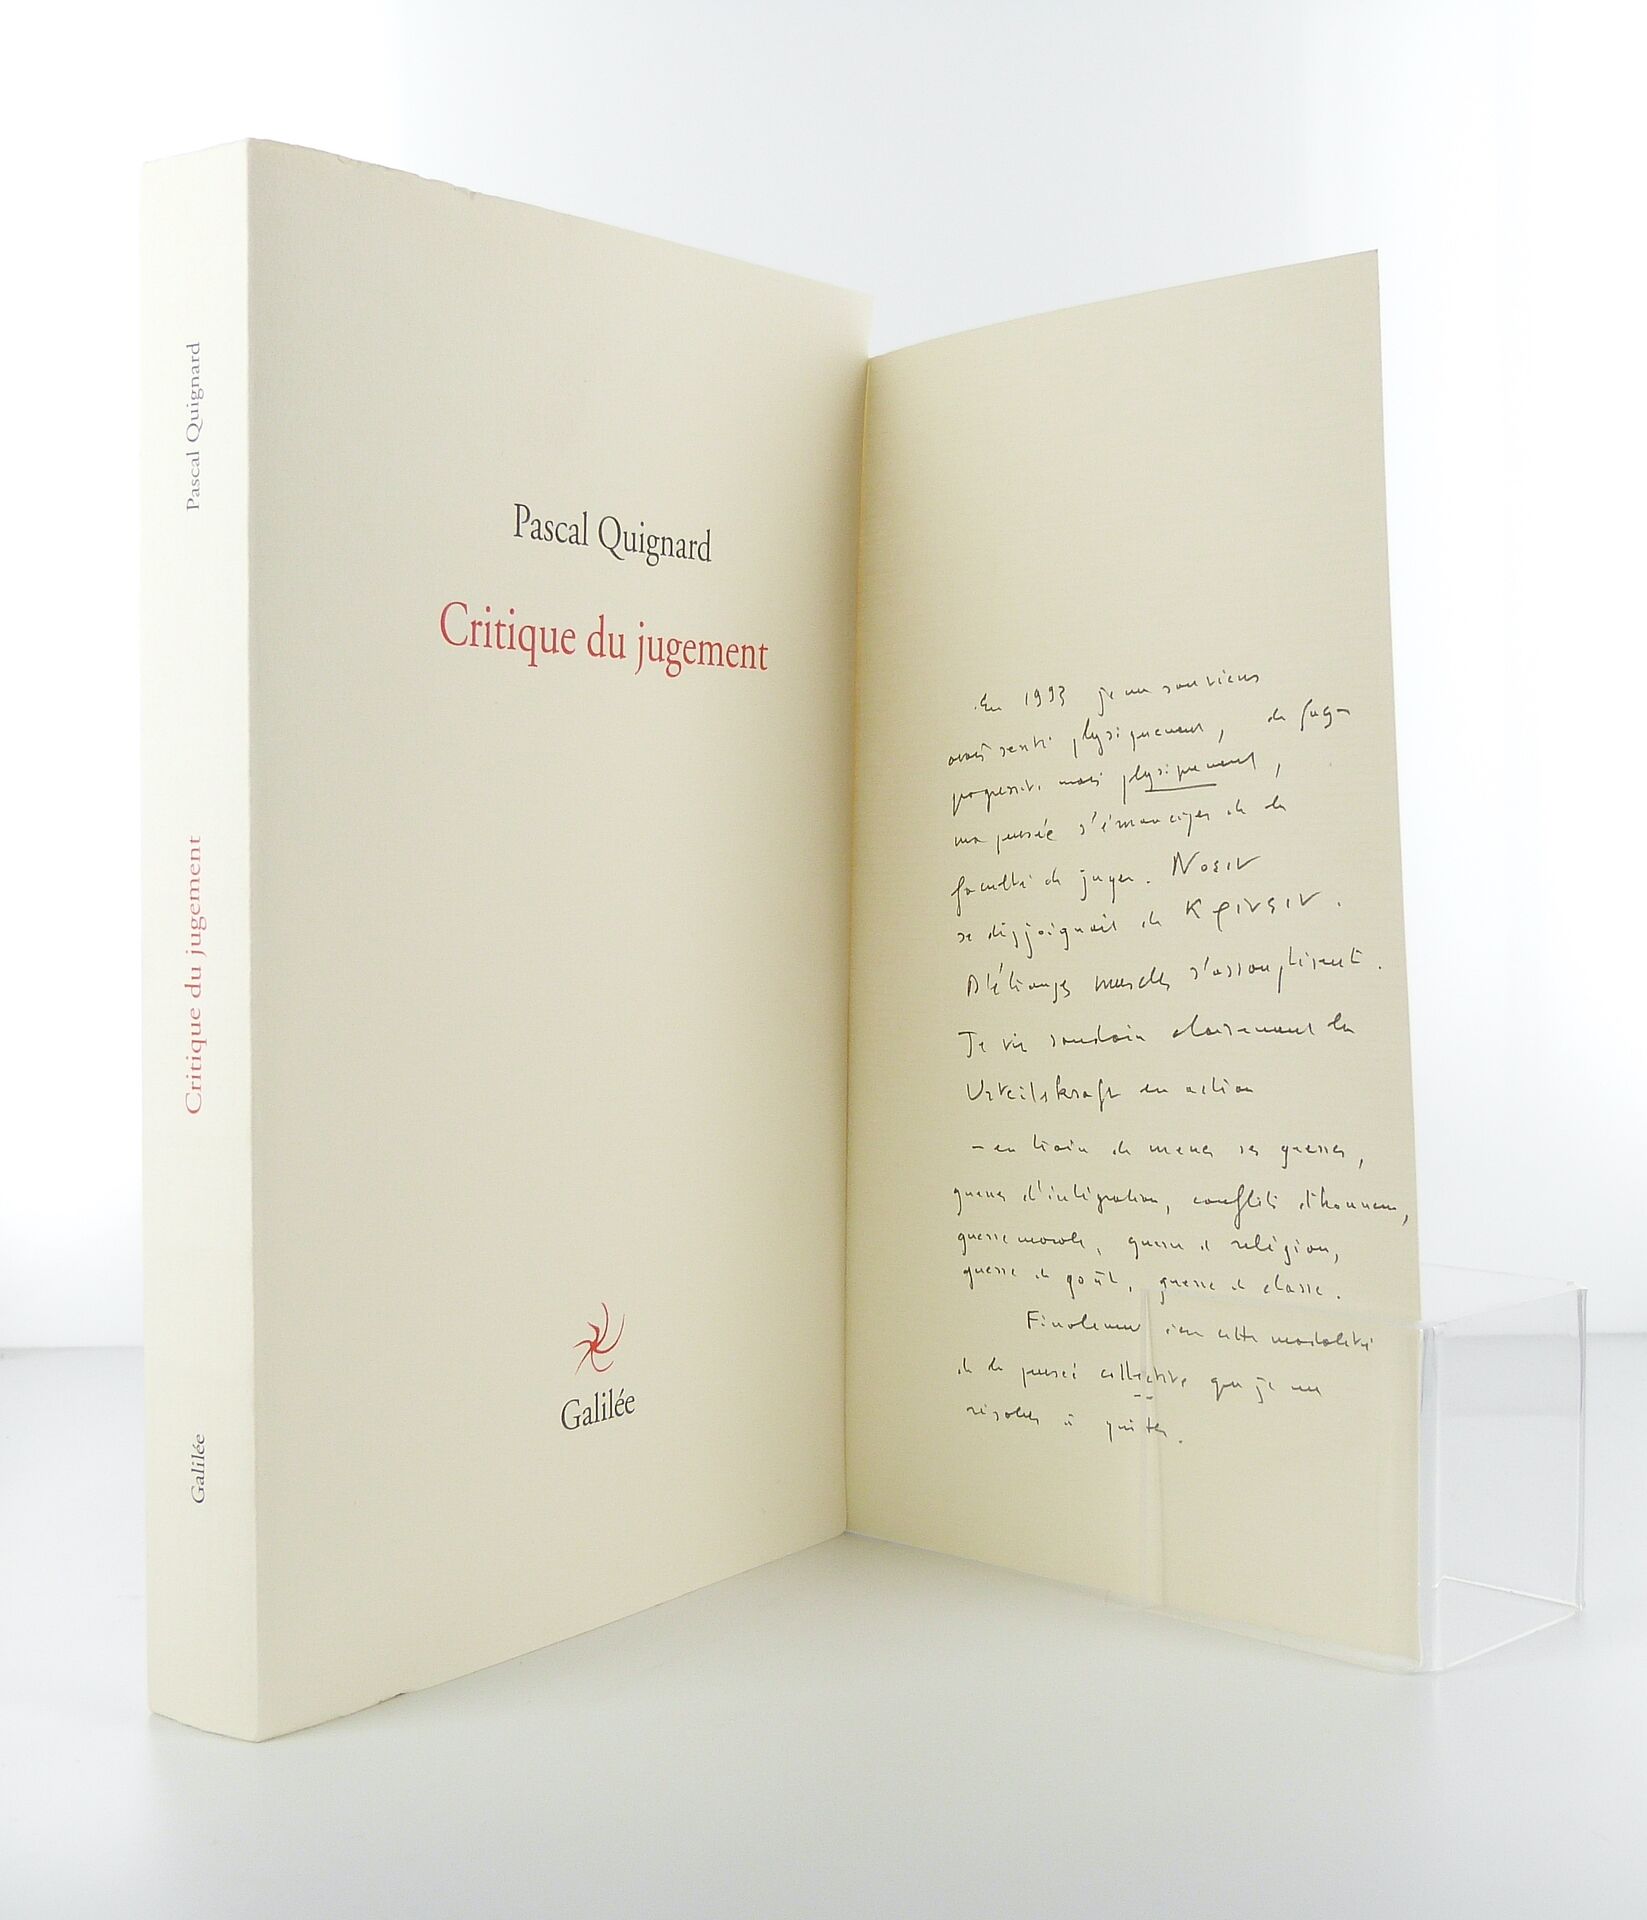 Pascal Quignard
Critique du jugement
Galilée
Pascal Quignard
Critique du jugement
Galilée
En 1993 je me souviens
avoir senti physiquement, de façon
progressive mais physiquement,
ma pensée s'émanciper de la
faculté de juger. Noεiν
se disjoignait de Kρινειν.
D'étranges muscles s'assouplirent.
Je vis soudain clairement la
Urteilskraft en action
– en train de mener ses guerres,
guerres d'intégration, conflits d'honneur,
guerre morale, guerre de religion,
guerre de goût, guerre de classe.
Finalement cette modalité
de la pensée collective que je me
résolus à quitter.